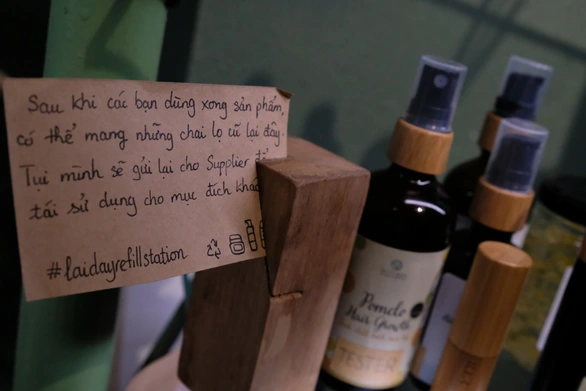 Sau khi các bạn dùng xong sản phẩm,
có thể mang những chai lọ cũ lại đây.
Tụi mình sẽ gửi lại cho Supplier để
tái sử dụng cho mục đích khác
#laidayrefillstation
Pomelo
Hair Growth
TESTER